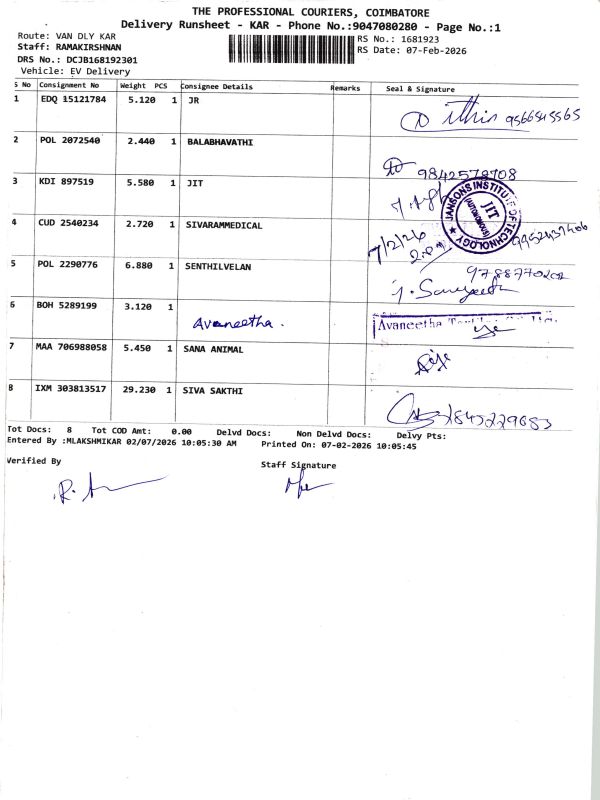 THE PROFESSIONAL COURIERS, COIMBATORE
Delivery Runsheet - KAR - Phone No.:9047080280 - Page No.:1
Route: VAN DLY KAR
Staff: RAMAKIRSHNAN
DRS No.: DCJB168192301
Vehicle: EV Delivery
RS No.: 1681923
RS Date: 07-Feb-2026
S No Consignment No Weight PCS Consignee Details Remarks Seal & Signature
1 EDQ 15121784 5.120 1 JR
9566545565
2 POL 2072540 2.440 1 BALABHAVATHI
9842579708
3 KDI 897519 5.580 1 JIT
JANSONS INSTITUTE OF TECHNOLOGY
JIT
(AUTONOMOUS)
4 CUD 2540234 2.720 1 SIVARAMMEDICAL
7/2/26
5 POL 2290776 6.880 1 SENTHILVELAN
6 BOH 5289199 3.120 1 Avaneetha.
Avaneetha
7 MAA 706988058 5.450 1 SANA ANIMAL
8 IXM 303813517 29.230 1 SIVA SAKTHI
Tot Docs: 8 Tot COD Amt: 0.00 Delvd Docs: Non Delvd Docs: Delvy Pts:
Entered By :MLAKSHMIKAR 02/07/2026 10:05:30 AM Printed On: 07-02-2026 10:05:45
Verified By
Staff Signature